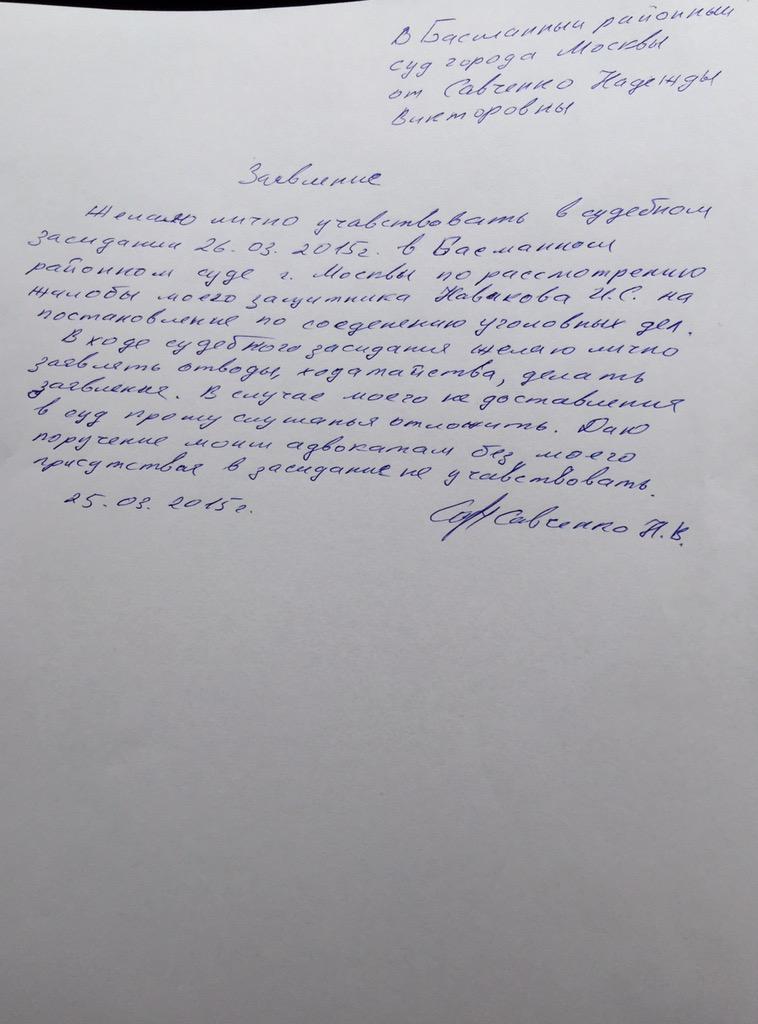 В Басманный районный
суд города Москвы
от Савченко Надежды
Викторовны
Заявление
Желаю лично учавствовать в судебном
засидании 26.03.2015г. в Басманном
районном суде г. Москвы по рассмотрению
жалобы моего защитника Новикова И.С. на
постановление по соеденению уголовных дел.
В ходе судебного засидания желаю лично
заявлять отводы, ходатайства, делать
заявления. В случае моего не доставления
в суд прошу слушанья отложить. Даю
поручение моим адвокатам без моего
присутствия в засидание не учавствовать.
25.03.2015г.
Савченко Н.В.